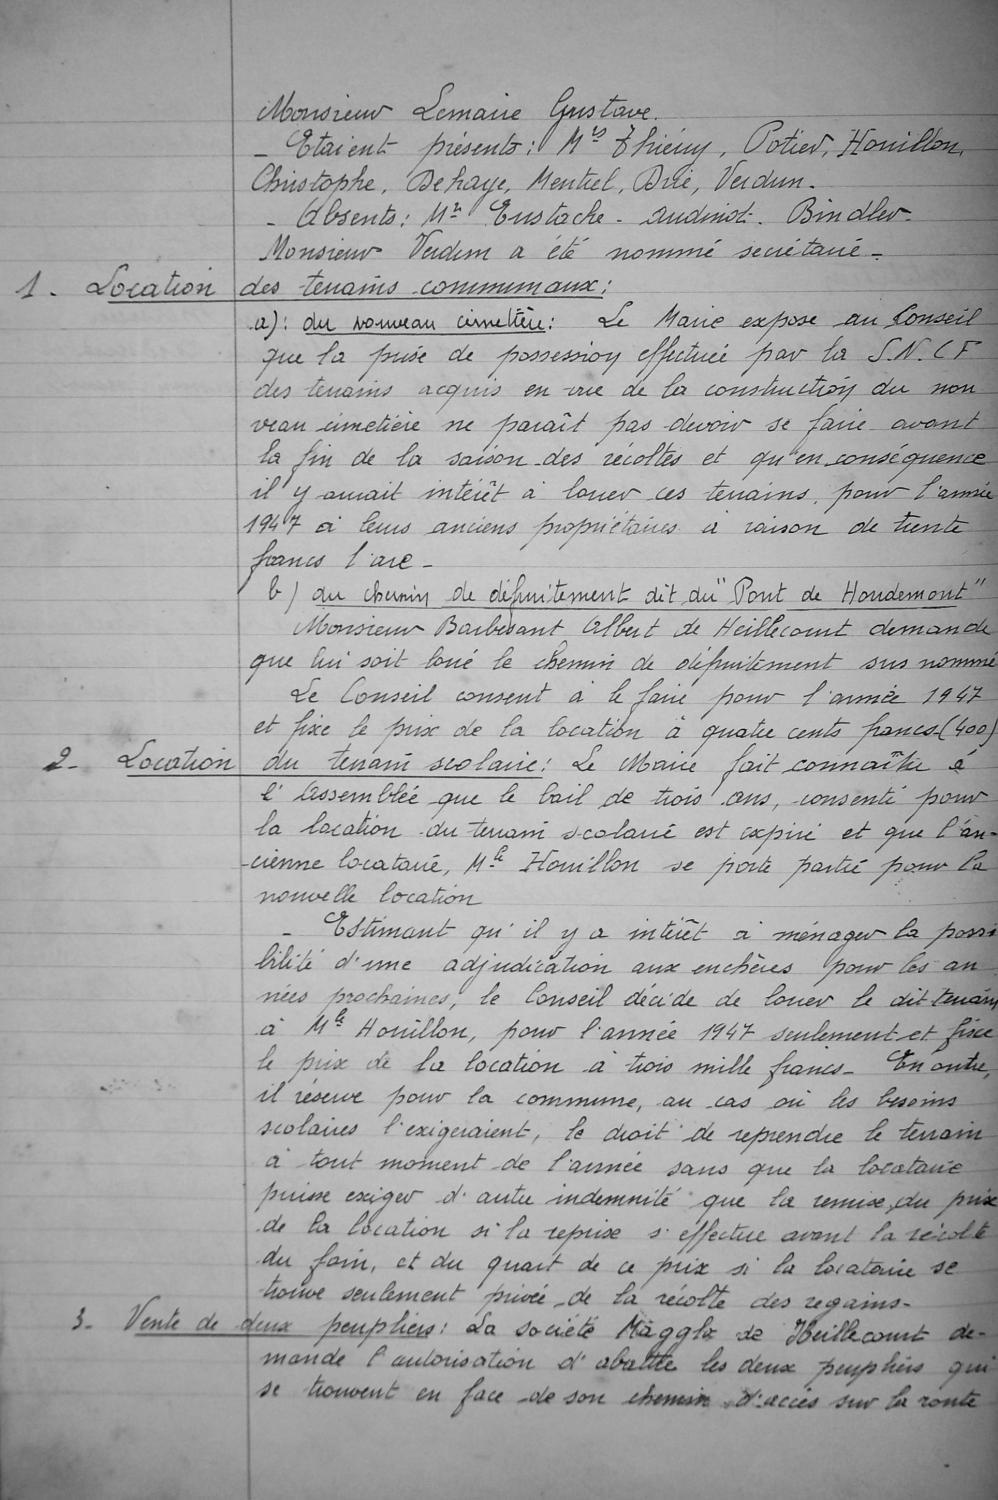 Monsieur Lemaire Gustave.
- Etaient présents: Mrs Thiéry, Potier, Houillon,
Christophe, Dehaye, Mentrel, Drié, Verdun.
- Absents: Mr Eustache - Audinot. Bindler.
Monsieur Verdun a été nommé secrétaire -
1. Location des terrains communaux:
a): du nouveau cimetière: Le Maire expose au Conseil
que la prise de possession effectuée par la S.N.C F
des terrains acquis en vue de la construction du nou
veau cimetière ne paraît pas devoir se faire avant
la fin de la saison des récoltes et qu'en conséquence
il y aurait intérêt à louer ces terrains, pour l'année
1947 à leurs anciens propriétaires à raison de trente
francs l'are -
b) du chemin de défruitement dit du "Pont de Houdemont"
Monsieur Barbesant Albert de Heillecourt demande
que lui soit loué le chemin de défruitement sus nommé
Le Conseil consent à le faire pour l'année 1947
et fixe le prix de la location à quatre cents francs (400)
2- Location du terrain scolaire: Le Maire fait connaître à
l'Assemblée que le bail de trois ans, consenti pour
la location du terrain scolaire est expiré et que l'an-
cienne locataire, Mle Houillon se porte partie pour la
nouvelle location
- Estimant qu'il y a intérêt à ménager la possi
bilité d'une adjudication aux enchères pour les an
nées prochaines, le Conseil décide de louer le dit terrain
à Mle Houillon, pour l'année 1947 seulement et fixe
le prix de la location à trois mille francs - En outre,
il réserve pour la commune, au cas où les besoins
scolaires l'exigeraient, le droit de reprendre le terrain
à tout moment de l'année sans que la locataire
puisse exiger d'autre indemnité que la remise du prix
de la location si la reprise s'effectue avant la récolte
du foin, et du quart de ce prix si la locataire se
trouve seulement privée de la récolte des regains -
3- Vente de deux peupliers: La société Magglx de Heillecourt de-
mande l'autorisation d'abattre les deux peupliers qui
se trouvent en face de son chemin d'accès sur la route